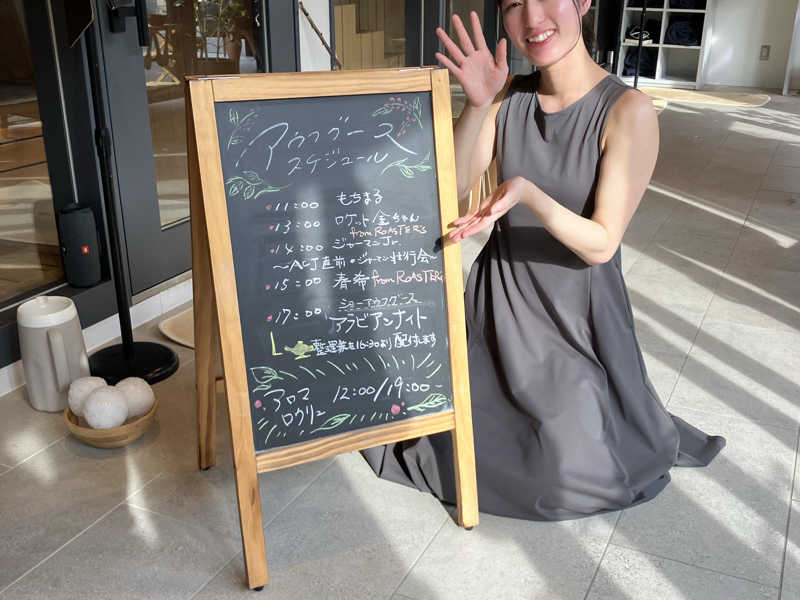 アウフグース
スケジュール
11:00 もちまる
13:00 ロケット金ちゃん
from ROASTER's
14:00 ジャーマンJr.
～ACJ直前・ジャーマン壮行会～
15:00 春希 from ROASTER's
ショーアウフグース
17:00 アラビアンナイト
整理券を16:30より配付します
アロマ 12:00/19:00～
ロウリュ